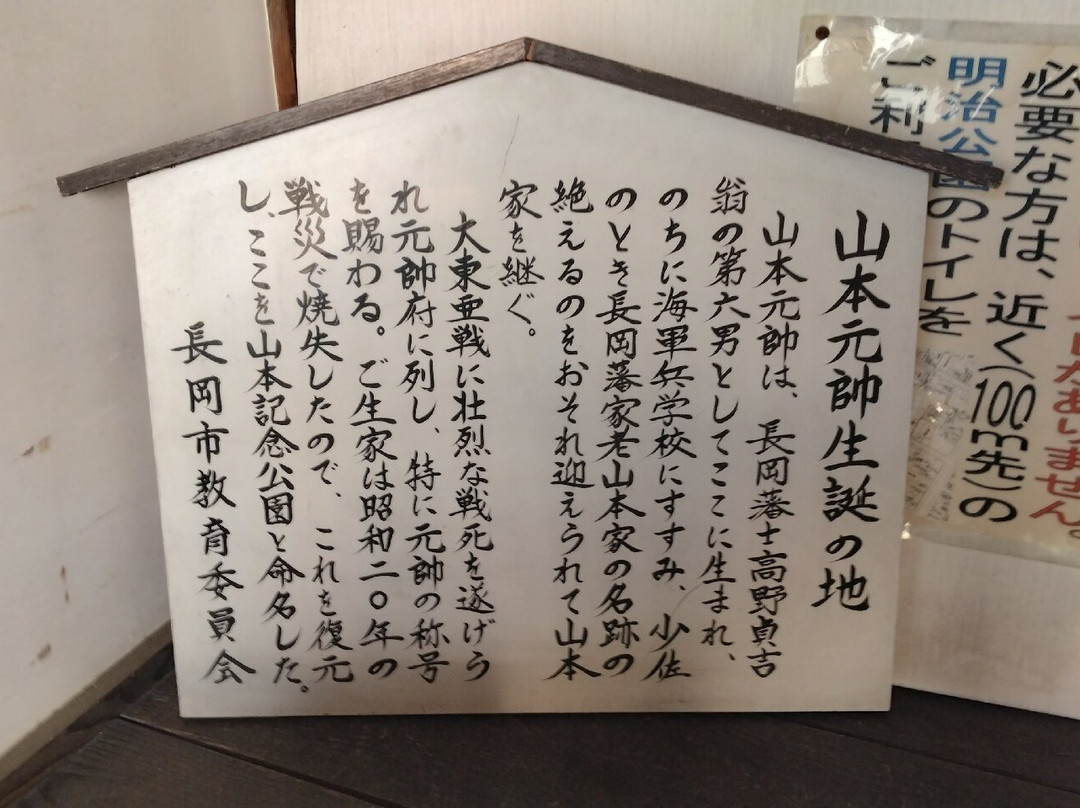 山本元帥生誕の地
山本元帥は、長岡藩士高野貞吉
翁の第六男としてここに生まれ、
のちに海軍兵学校にすすみ、少佐
のとき長岡藩家老山本家の名跡の
絶えるのをおそれ迎えられて山本
家を継ぐ。
大東亜戦に壮烈な戦死を遂げら
れ元帥府に列し、特に元帥の称号
を賜わる。ご生家は昭和二〇年の
戦災で焼失したので、これを復元
し、ここを山本記念公園と命名した。
長岡市教育委員会
ありません。
必要な方は、近く(100m先)の
明治公園のトイレを
ご利